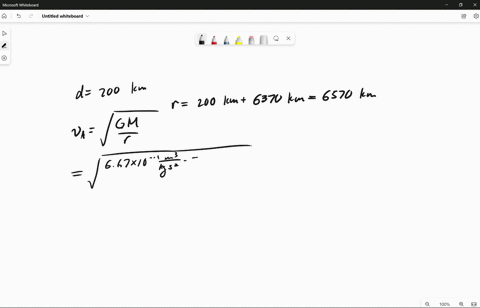 Microsoft Whiteboard
Untitled whiteboard
d = 200 km
r = 200 km + 6370 km = 6570 km
v_A = √(GM/r)
= √(6.67×10⁻¹¹ m³/kg s² · –
100%